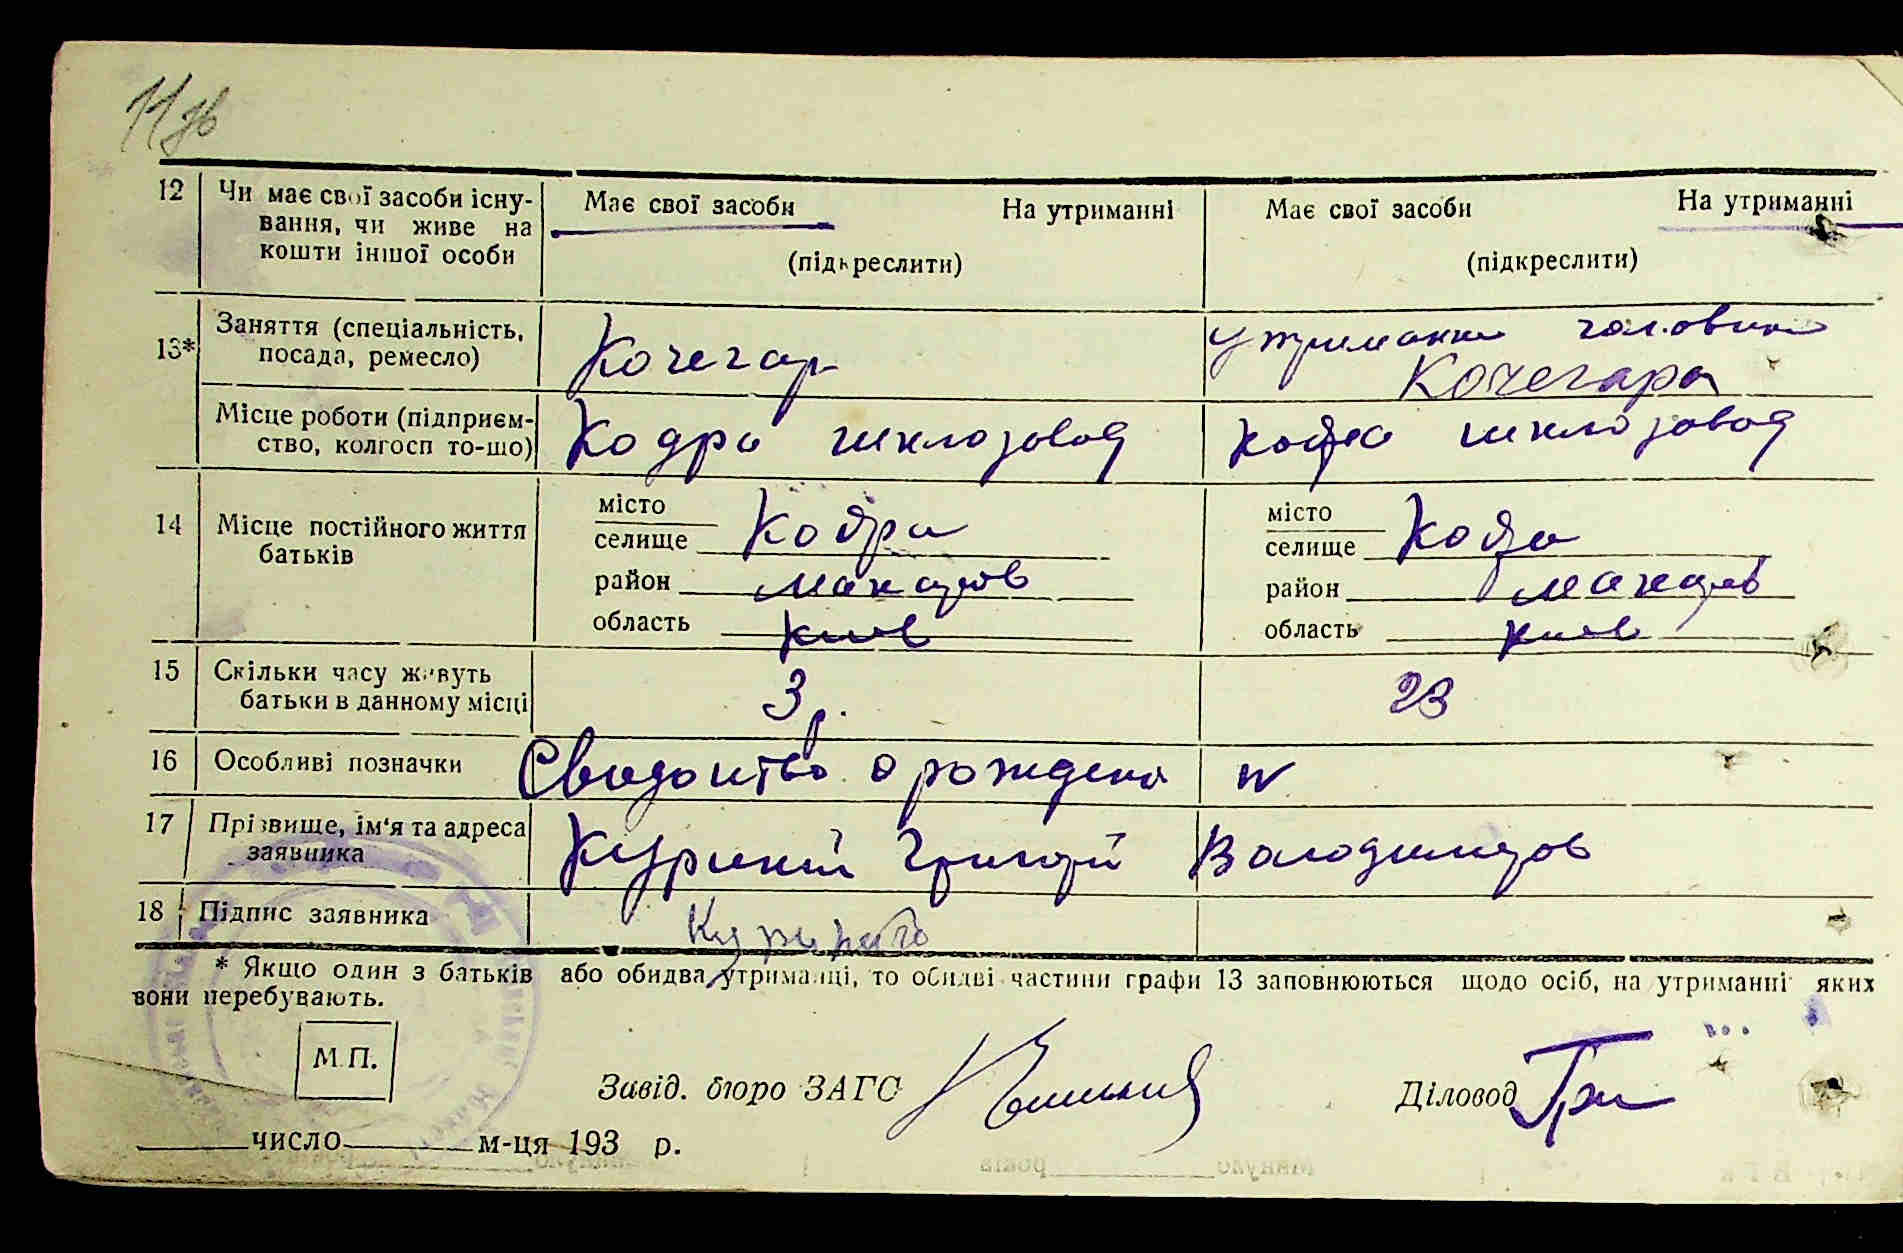 11 зв
12 Чи має свої засоби існу- Має свої засоби На утриманні Має свої засоби На утриманні
вання, чи живе на
кошти іншої особи (підкреслити) (підкреслити)
13* Заняття (спеціальність, Кочегар Утриманка чоловика
посада, ремесло) Кочегара
Місце роботи (підприєм- Кодра шклозавод Кодра шклозавод
ство, колгосп то-що)
14 Місце постійного життя місто Кодра місто Кодра
батьків селище селище
район Макаров район Макаров
область Киев область Киев
15 Скільки часу живуть 3 р. 23
батьки в данному місці
16 Особливі позначки Свидоцтво о рождении №
17 Прізвище, ім'я та адреса Григорий Володимиров
заявника
18 Підпис заявника
* Якщо один з батьків або обидва утриманці, то обидві частини графи 13 заповнюються щодо осіб, на утриманні яких
вони перебувають.
М.П.
Завід. бюро ЗАГС Діловод
число м-ця 193 р.